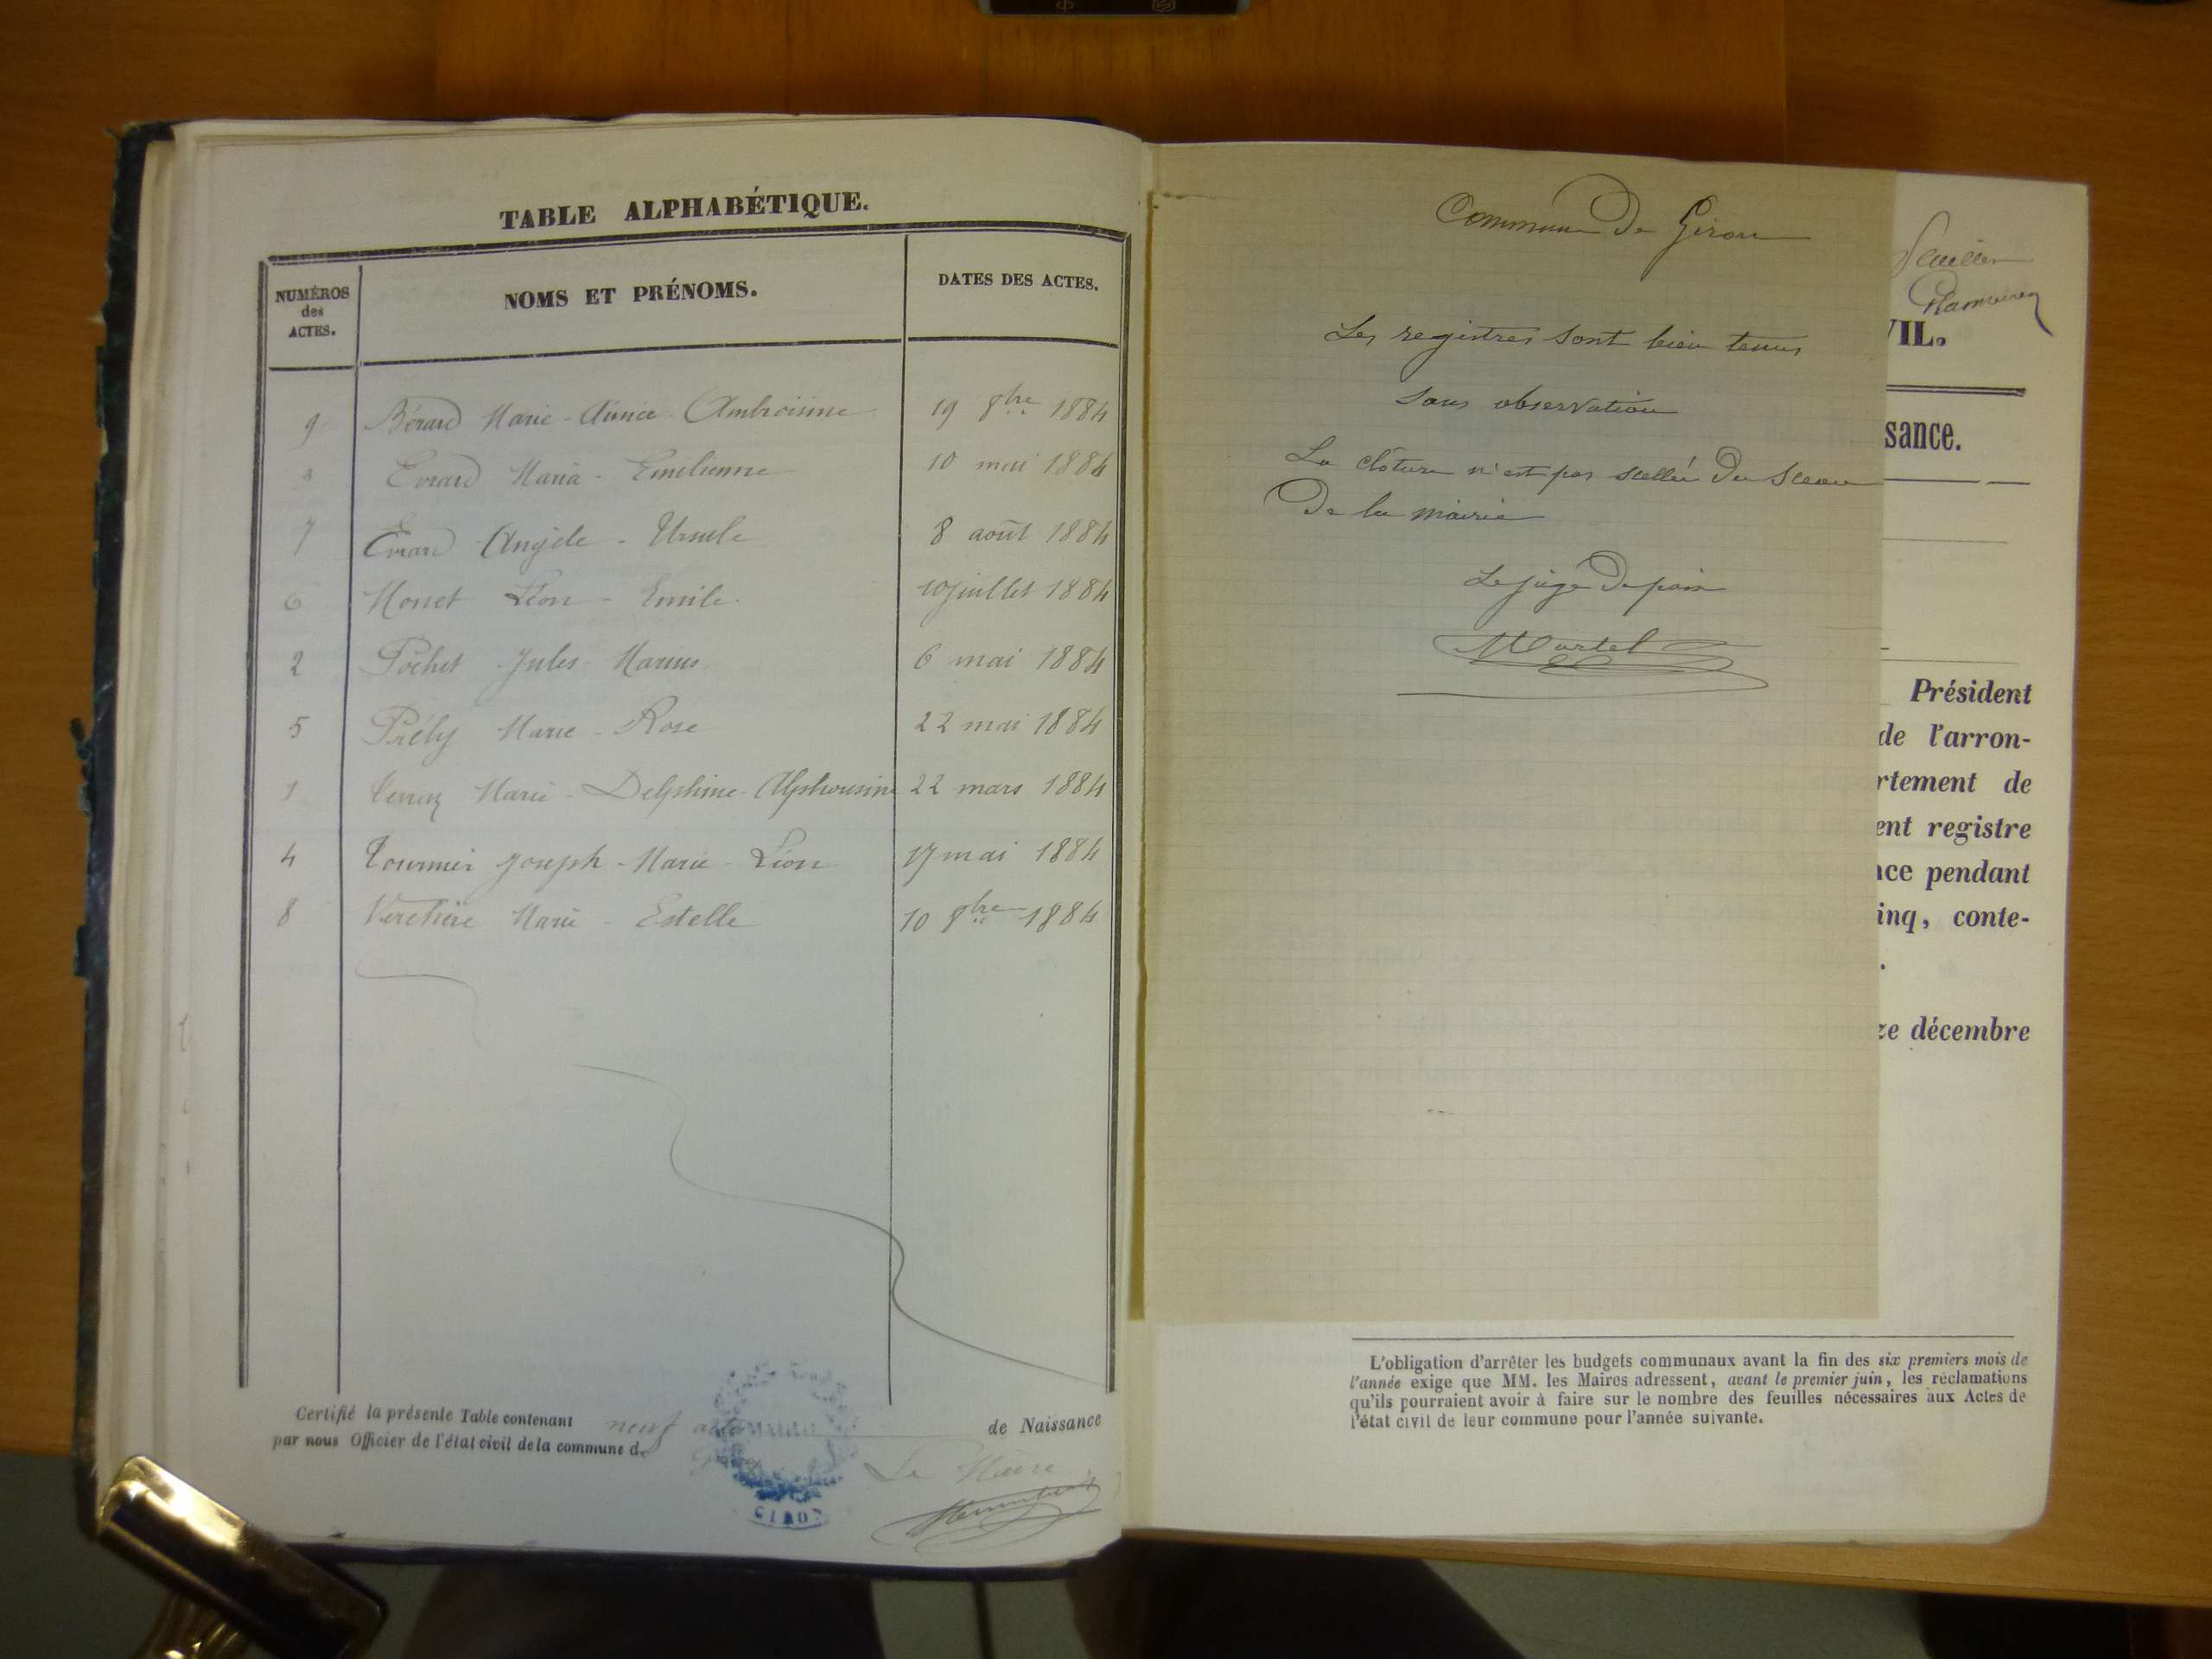 TABLE ALPHABÉTIQUE.
NUMÉROS des ACTES. NOMS ET PRÉNOMS. DATES DES ACTES.
9 Bérard Marie-Aimée-Ambroisine 19 8bre 1884
Evrard Maria-Emilienne 10 mai 1884
7 Evrard Angèle-Ursule 8 août 1884
6 Monet Léon-Emile 10 juillet 1884
2 Pochet Jules-Marius 6 mai 1884
5 Prély Marie-Rose 22 mai 1884
1 Marie-Delphine-Alphonsine 22 mars 1884
4 Tournier Joseph-Marie-Léon 17 mai 1884
8 Marie-Estelle 10 8bre 1884
Certifié la présente Table contenant neuf actes de Naissance
par nous Officier de l'état civil de la commune d
Le Maire
MAIRIE
GIRON
Commune de Giron
Les registres sont bien tenus
sans observation
La clôture n'est pas scellée du sceau
de la mairie
Le juge de paix
Martel
VIL.
sance.
Président
de l'arron-
rtement de
ent registre
nce pendant
inq, conte-
.
ze décembre
L'obligation d'arrêter les budgets communaux avant la fin des six premiers mois de
l'année exige que MM. les Maires adressent, avant le premier juin, les réclamations
qu'ils pourraient avoir à faire sur le nombre des feuilles nécessaires aux Actes de
l'état civil de leur commune pour l'année suivante.